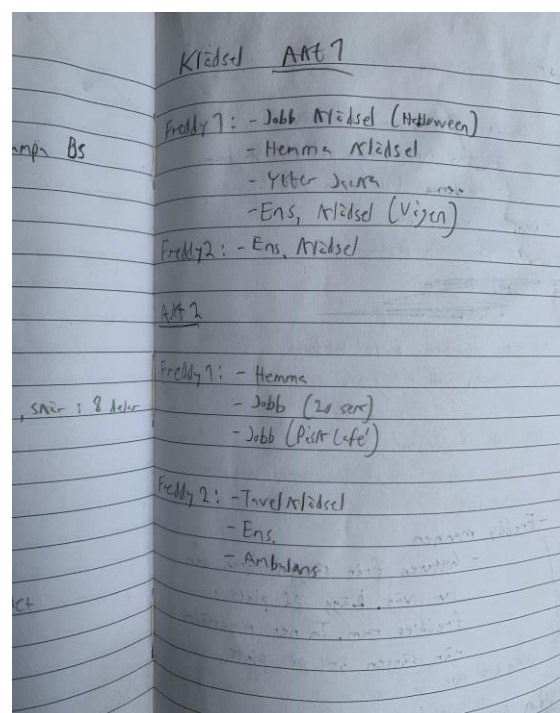 Klädsel Akt 1
Freddy 1: - Jobb Klädsel (Halloween)
- Hemma Klädsel
- Ytter Jacka
- Ens, Klädsel (Vigen)
Freddy 2: - Ens. Klädsel
Akt 2
Freddy 1: - Hemma
- Jobb (20 sen)
- Jobb (Café)
Freddy 2: - Tavel Klädsel
- Ens.
- Ambulans
Bs
, snör i 8 delar